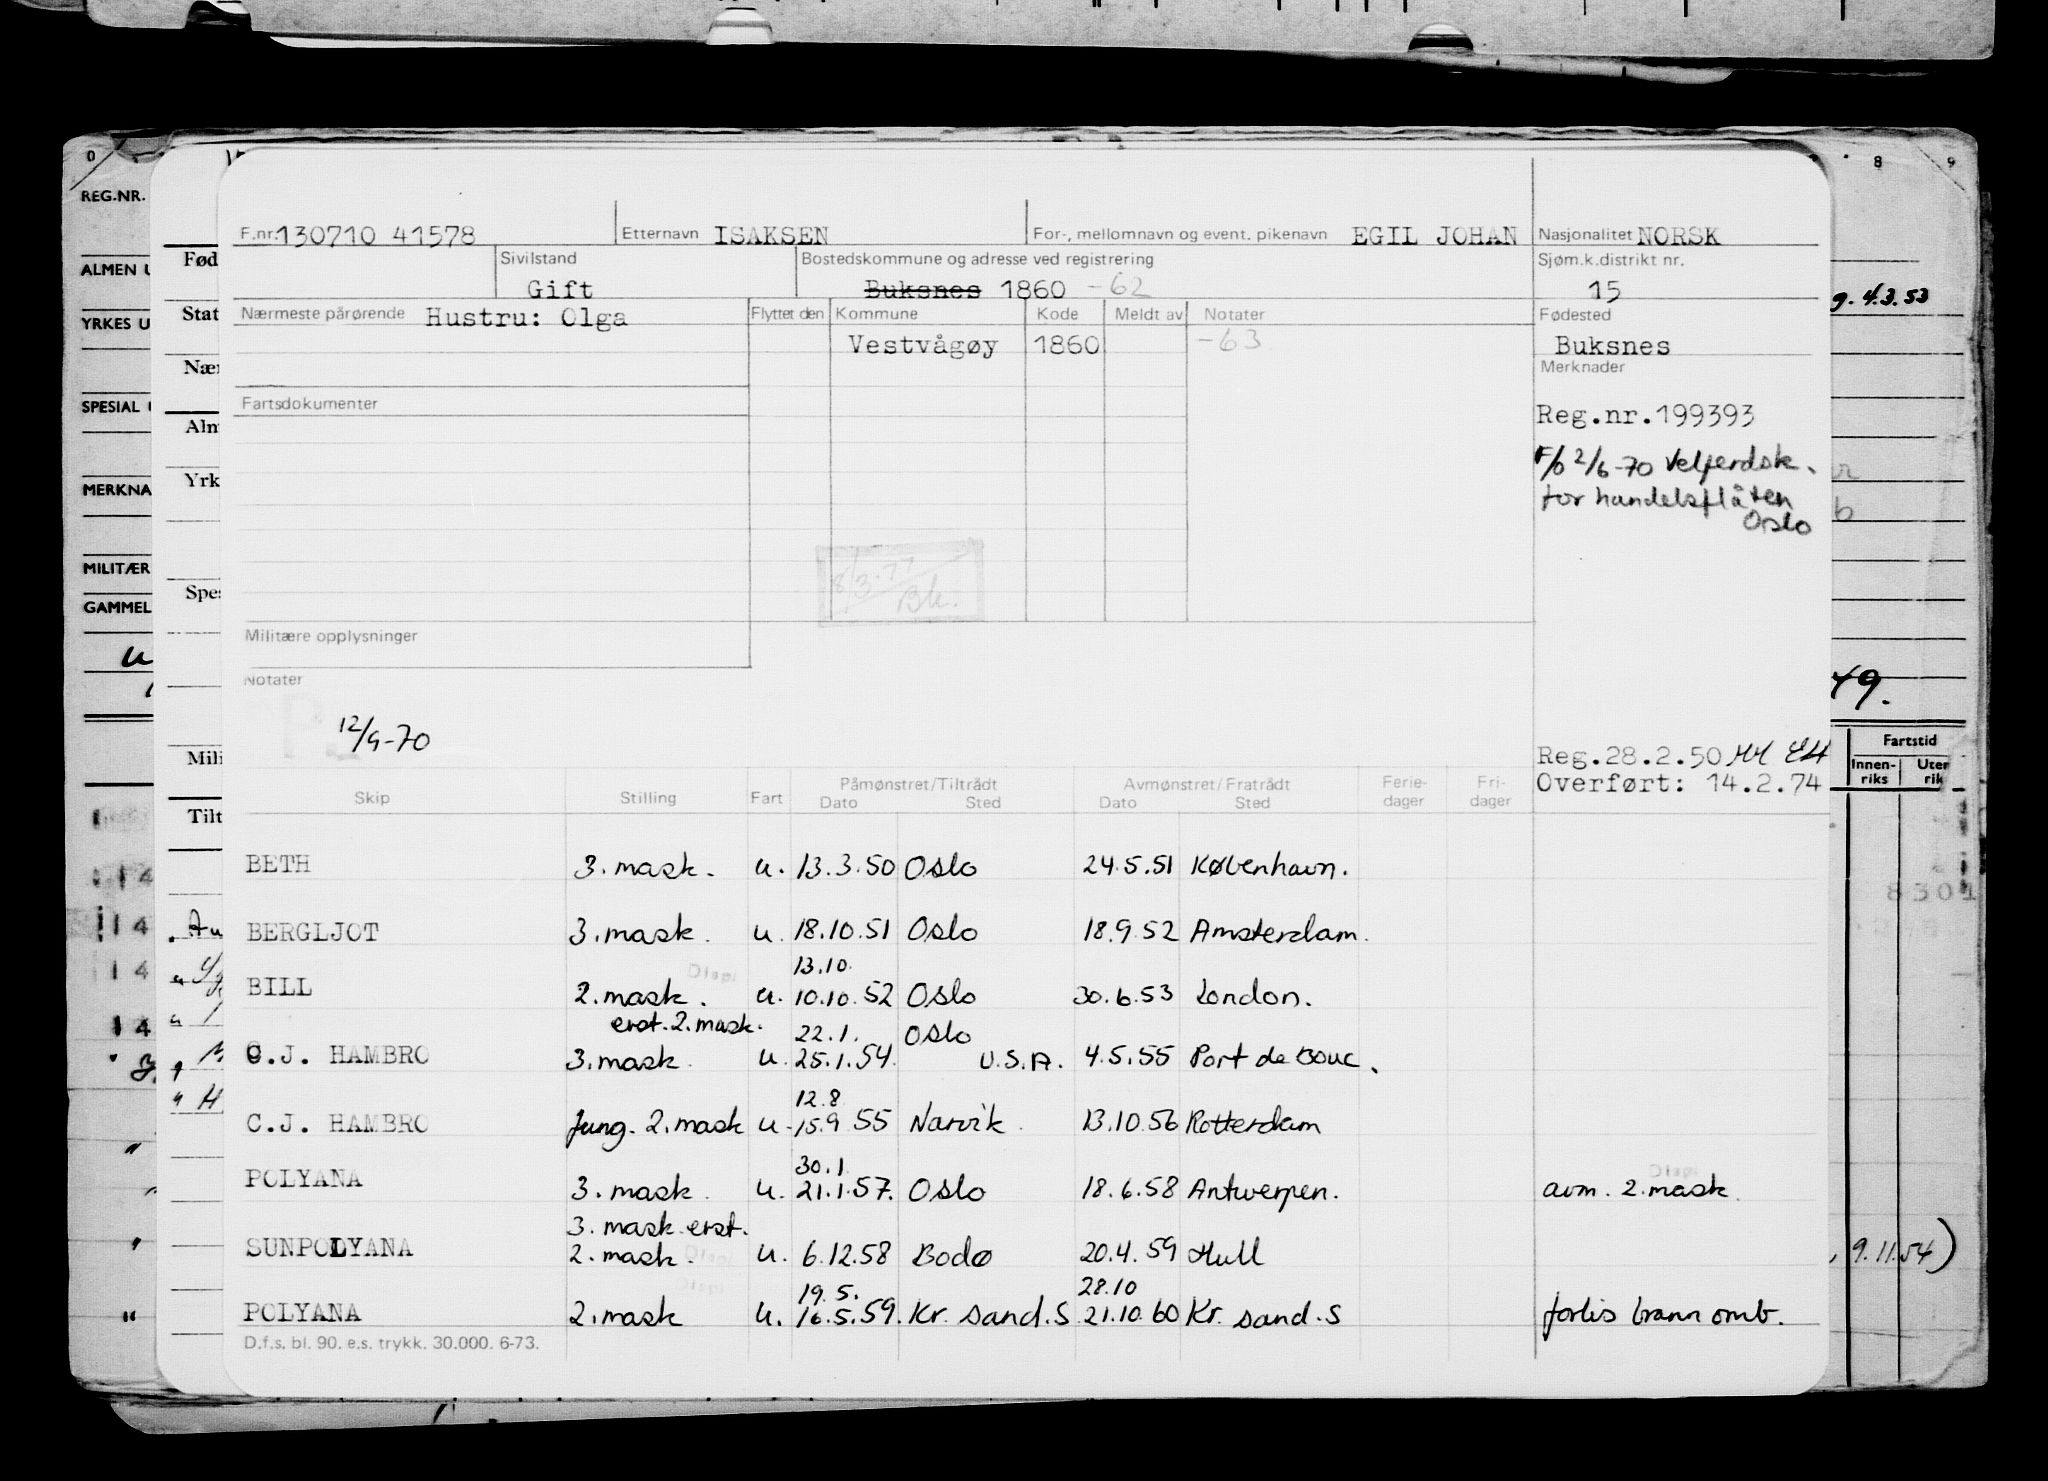 0 8 9
REG.NR.
F.nr. 130710 41578 Etternavn ISAKSEN For-, mellomnavn og event. pikenavn EGIL JOHAN Nasjonalitet NORSK
ALMEN U Fød Sivilstand Bostedskommune og adresse ved registrering Sjøm.k.distrikt nr.
Gift Buksnes 1860 -62 15 g. 4.3.53
YRKES U Stat Nærmeste pårørende Hustru: Olga Flyttet den Kommune Kode Meldt av Notater Fødested
Vestvågøy 1860 -63 Buksnes
Nær Merknader
SPESIAL Fartsdokumenter
Alm Reg.nr.199393
F/b 2/6-70 Velferdsk.
MERKNA Yrk for handelsflåten
Oslo
MILITÆR 8/3.77
Spes Bk.
GAMMEL
Militære opplysninger
Notater 49.
12/9-70
Mili Reg.28.2.50 Fartstid
Overført: 14.2.74 Innen-riks Uten rik
Skip Stilling Fart Påmønstret/Tiltrådt Avmønstret/Fratrådt Ferie-dager Fri-dager
Dato Sted Dato Sted
Tilt
BETH 3. mask. u. 13.3.50 Oslo 24.5.51 København.
14 8301
14 BERGLJOT 3. mask. u. 18.10.51 Oslo 18.9.52 Amsterdam.
Disp. 13.10.
14 BILL 2. mask. u. 10.10.52 Oslo 30.6.53 London.
erst. 2. mask. 22.1. Oslo
14 C.J. HAMBRO 3. mask. u. 25.1.54. U.S.A. 4.5.55 Port de Bouc.
12.8
C.J. HAMBRO Jung. 2. mask u. 15.9 55 Narvik. 13.10.56 Rotterdam
30.1. Disp.
POLYANA 3. mask. u. 21.1.57. Oslo 18.6.58 Antwerpen. avm. 2. mask.
3. mask. erst.
SUNPOLYANA 2. mask. Disp. u. 6.12.58 Bodø 20.4.59 Hull 9.11.54)
Disp. 19.5. 28.10
POLYANA 2. mask u. 16.5.59. Kr. sand.S 21.10.60 Kr. sand.S forlis brann omb.
D.f.s. bl. 90. e.s. trykk. 30.000. 6-73.